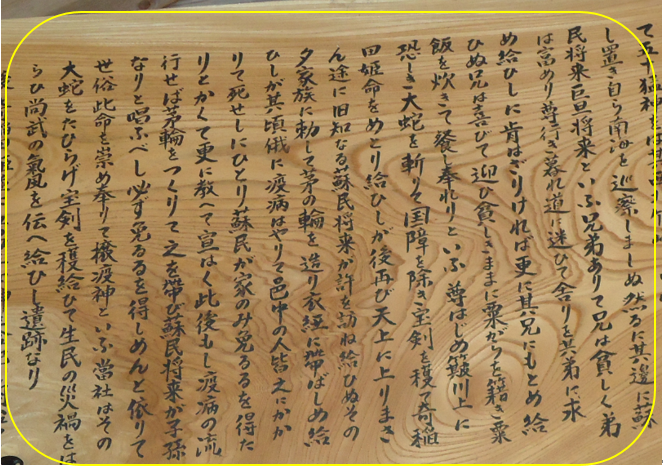 し置き自ら南海を巡察しましぬ然るに其邊に蘇
民将来巨旦将来といふ兄弟ありて兄は貧しく弟
は富めり尊行き暮れ道に迷ひて舎りを其弟に求
め給ひしに肯はざりければ更に其兄にもとめ給
ひぬ兄は喜びて迎ひ貧しきままに粟がらを籍き粟
飯を炊きて饗し奉れりといふ 尊はじめ簸川上に
恐しき大蛇を斬りて国障を除き宝剣を穫て奇稲
田姫命をめとり給ひしが後再び天上に上りまさ
ん途に旧知なる蘇民将来が許を訪ね給ひぬその
夕家族に勅して茅の輪を造り衣紐に帯ばしめ給
ひしが其頃俄に疫病はやりて邑中の人皆之にかか
りて死せしにひとり蘇民が家のみ免るるを得た
りとかくて更に教へて宣はく此後もし疫病の流
行せば茅輪をつくりて之を帯び蘇民将来が子孫
なりと唱ふべし必ず免るるを得しめんと依りて
世俗此命を崇め奉りて 疫神といふ 當社はその
大蛇をたひらげ宝剣を穫給ひて生民の災禍をは
らひ尚武の氣風を伝へ給ひし遺跡なり